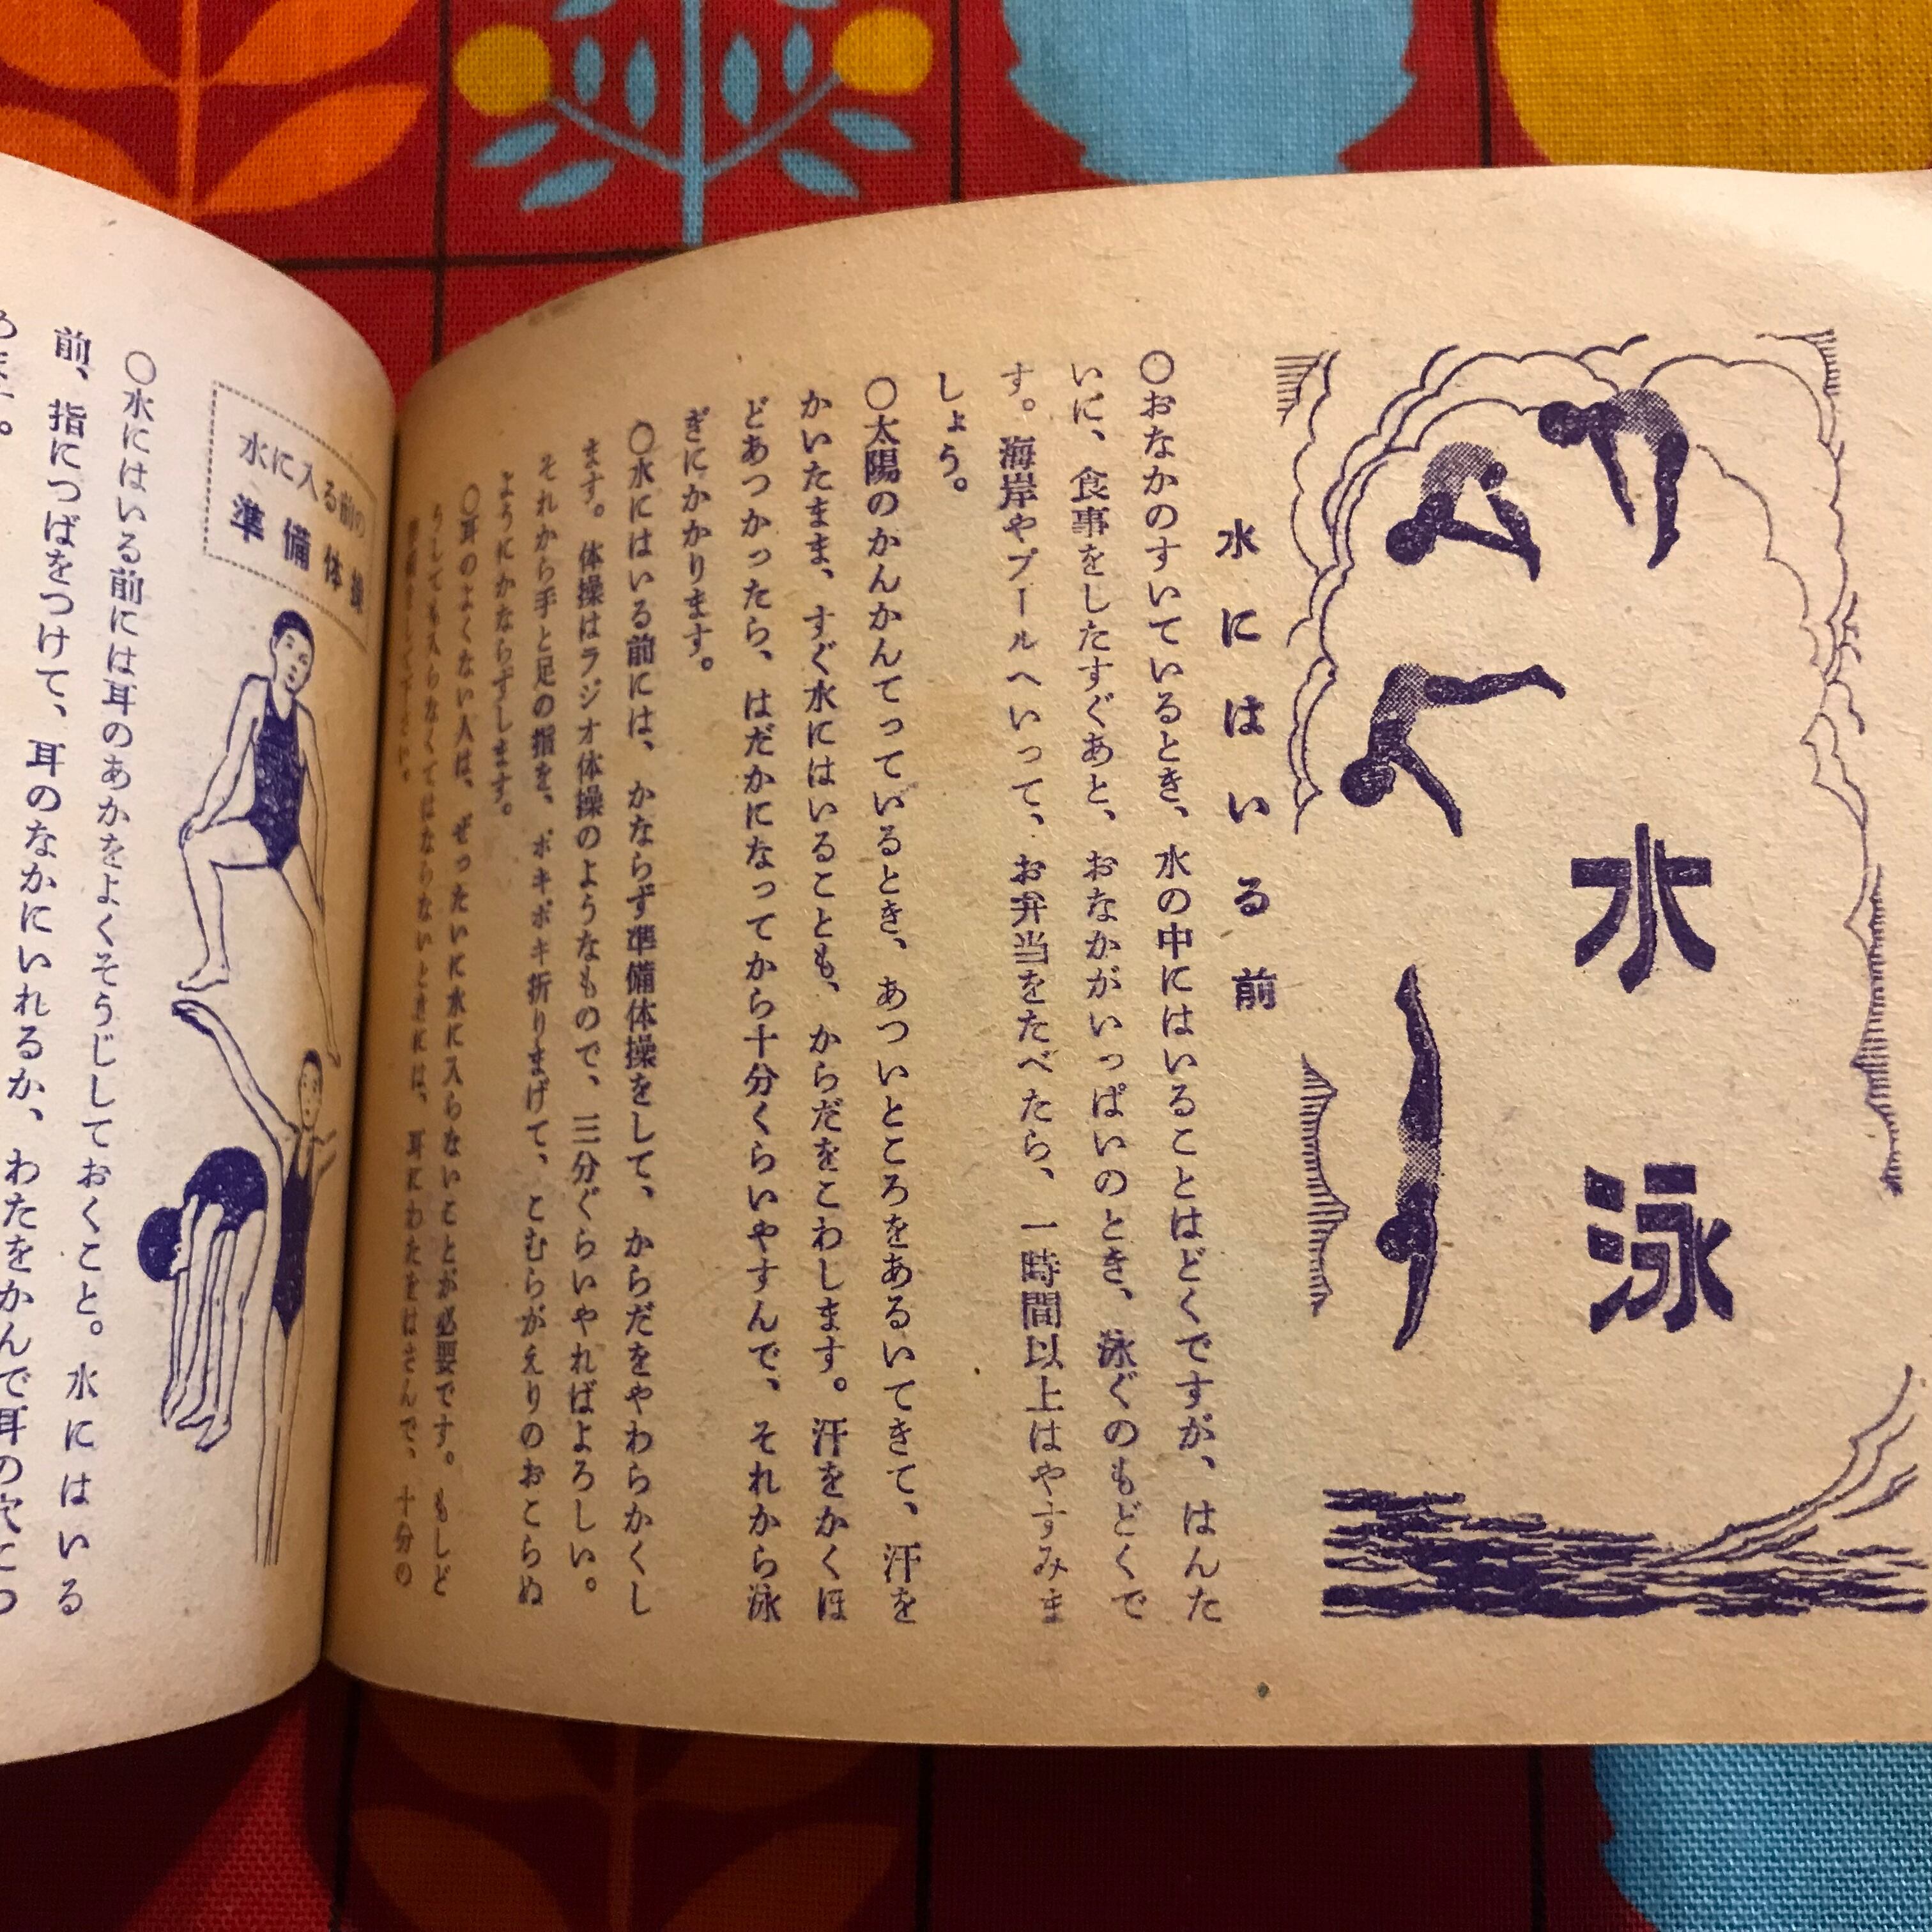 水泳
水にはいる前
○おなかのすいているとき、水の中にはいることはどくですが、はんた
いに、食事をしたすぐあと、おなかがいっぱいのとき、泳ぐのもどくで
す。海岸やプールへいって、お弁当をたべたら、一時間以上はやすみま
しょう。
○太陽のかんかんてっているとき、あついところをあるいてきて、汗を
かいたまま、すぐ水にはいることも、からだをこわします。汗をかくほ
どあつかったら、はだかになってから十分くらいやすんで、それから泳
ぎにかかります。
○水にはいる前には、かならず準備体操をして、からだをやわらかくし
ます。体操はラジオ体操のようなもので、三分ぐらいやればよろしい。
それから手と足の指を、ポキポキ折りまげて、こむらがえりのおこらぬ
ようにかならずします。
○耳のよくない人は、ぜったいに水に入らないことが必要です。もしど
うしても入らなくてはならないときには、耳にわたをはさんで、十分の
して下さい。
水に入る前の
準備体操
○水にはいる前には耳のあかをよくそうじしておくこと。水にはいる
前、指につばをつけて、耳のなかにいれるか、わたをかんで耳の穴につ